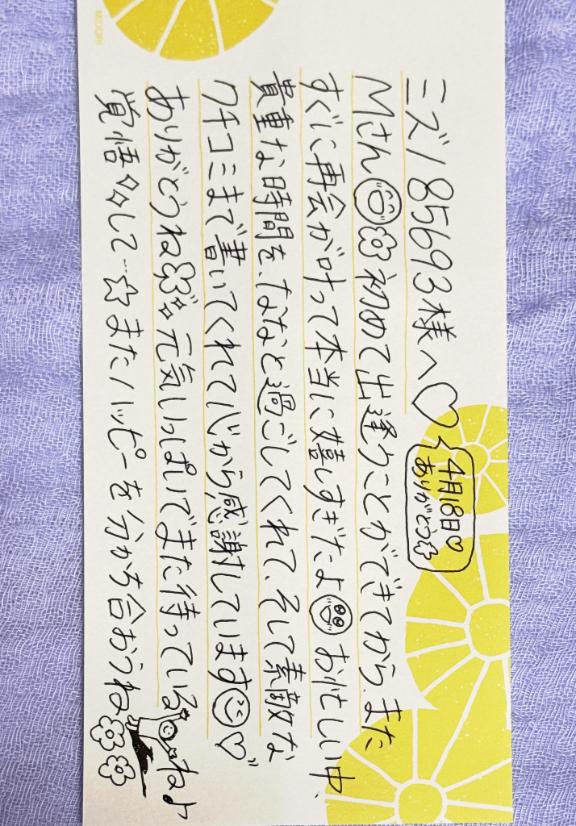 ミズノ85693様へ♡
4月18日♡
ありがとう☆
Mさん初めて出逢うことができてから、また
すぐに再会が叶って本当に嬉しすぎたよ お忙しい中、
貴重な時間を、ななと過ごしてくれて、そして素敵な
クチコミまで書いてくれて心から感謝しています♡
ありがとうね 元気いっぱいでまた待っているねよ
覚悟々して…☆またハッピーを分かち合おうね
MIDORI